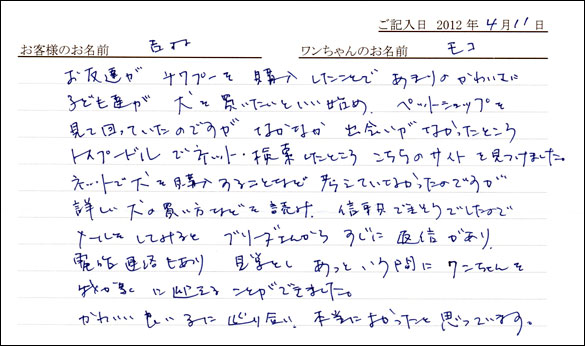 ご記入日 2012 年 4 月 11 日
お客様のお名前 ワンちゃんのお名前 モコ
お友達が ティカプーを 購入 したことで あまりの かわいさに
子ども達が 犬を 買いたいと いい 始め、ペットショップを
見て 回っていたのですが なかなか 出会いが なかったところ
トイプードル で ネット・検索 したところ こちらの サイト を 見つけました。
ネットで 犬を 購入 することなど 考えていなかったのですが
詳しい 犬の 買い方 などを 読み、信用 できそうでしたので
メールを してみると ブリーダーさんから すぐに 返信 があり、
電話 連絡 もあり 見学をし あっという間に ワンちゃんを
我が家 に 迎える ことができました。
かわいい 良い子に 巡り合い、本当に よかったと 思っています。